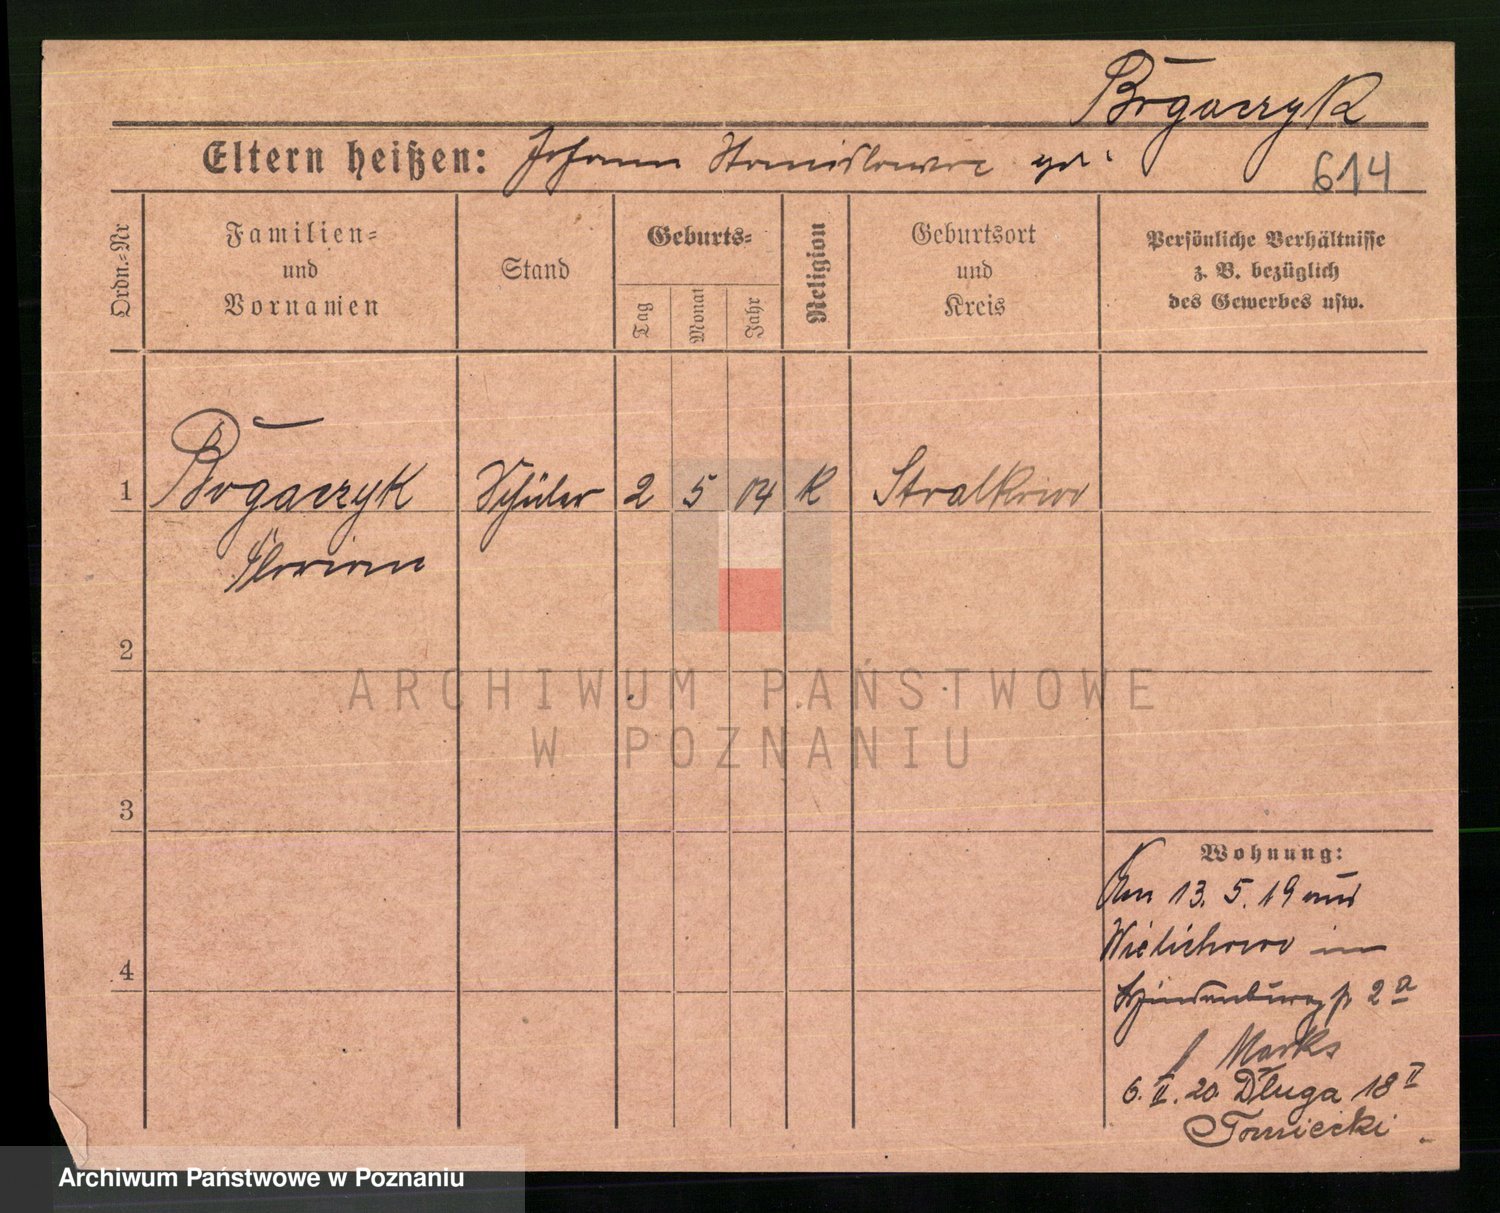 Bogaczyk
Eltern heißen: Johann Stanislawa geb.
614
Ordn.-Nr
Familien-
und
Vornamen
Stand
Geburts-
Tag
Monat
Jahr
Religion
Geburtsort
und
Kreis
Persönliche Verhältnisse
z. B. bezüglich
des Gewerbes usw.
1 Bogaczyk Schüler 2 5 04 K
Florian
2
ARCHIWUM PAŃSTWOWE
W POZNANIU
3
Wohnung:
13. 5. 19 aus
Wielichowo in
4
Hindenburg 2a
Marks
6. II. 20. Długa 18 II
Tomiecki
Archiwum Państwowe w Poznaniu